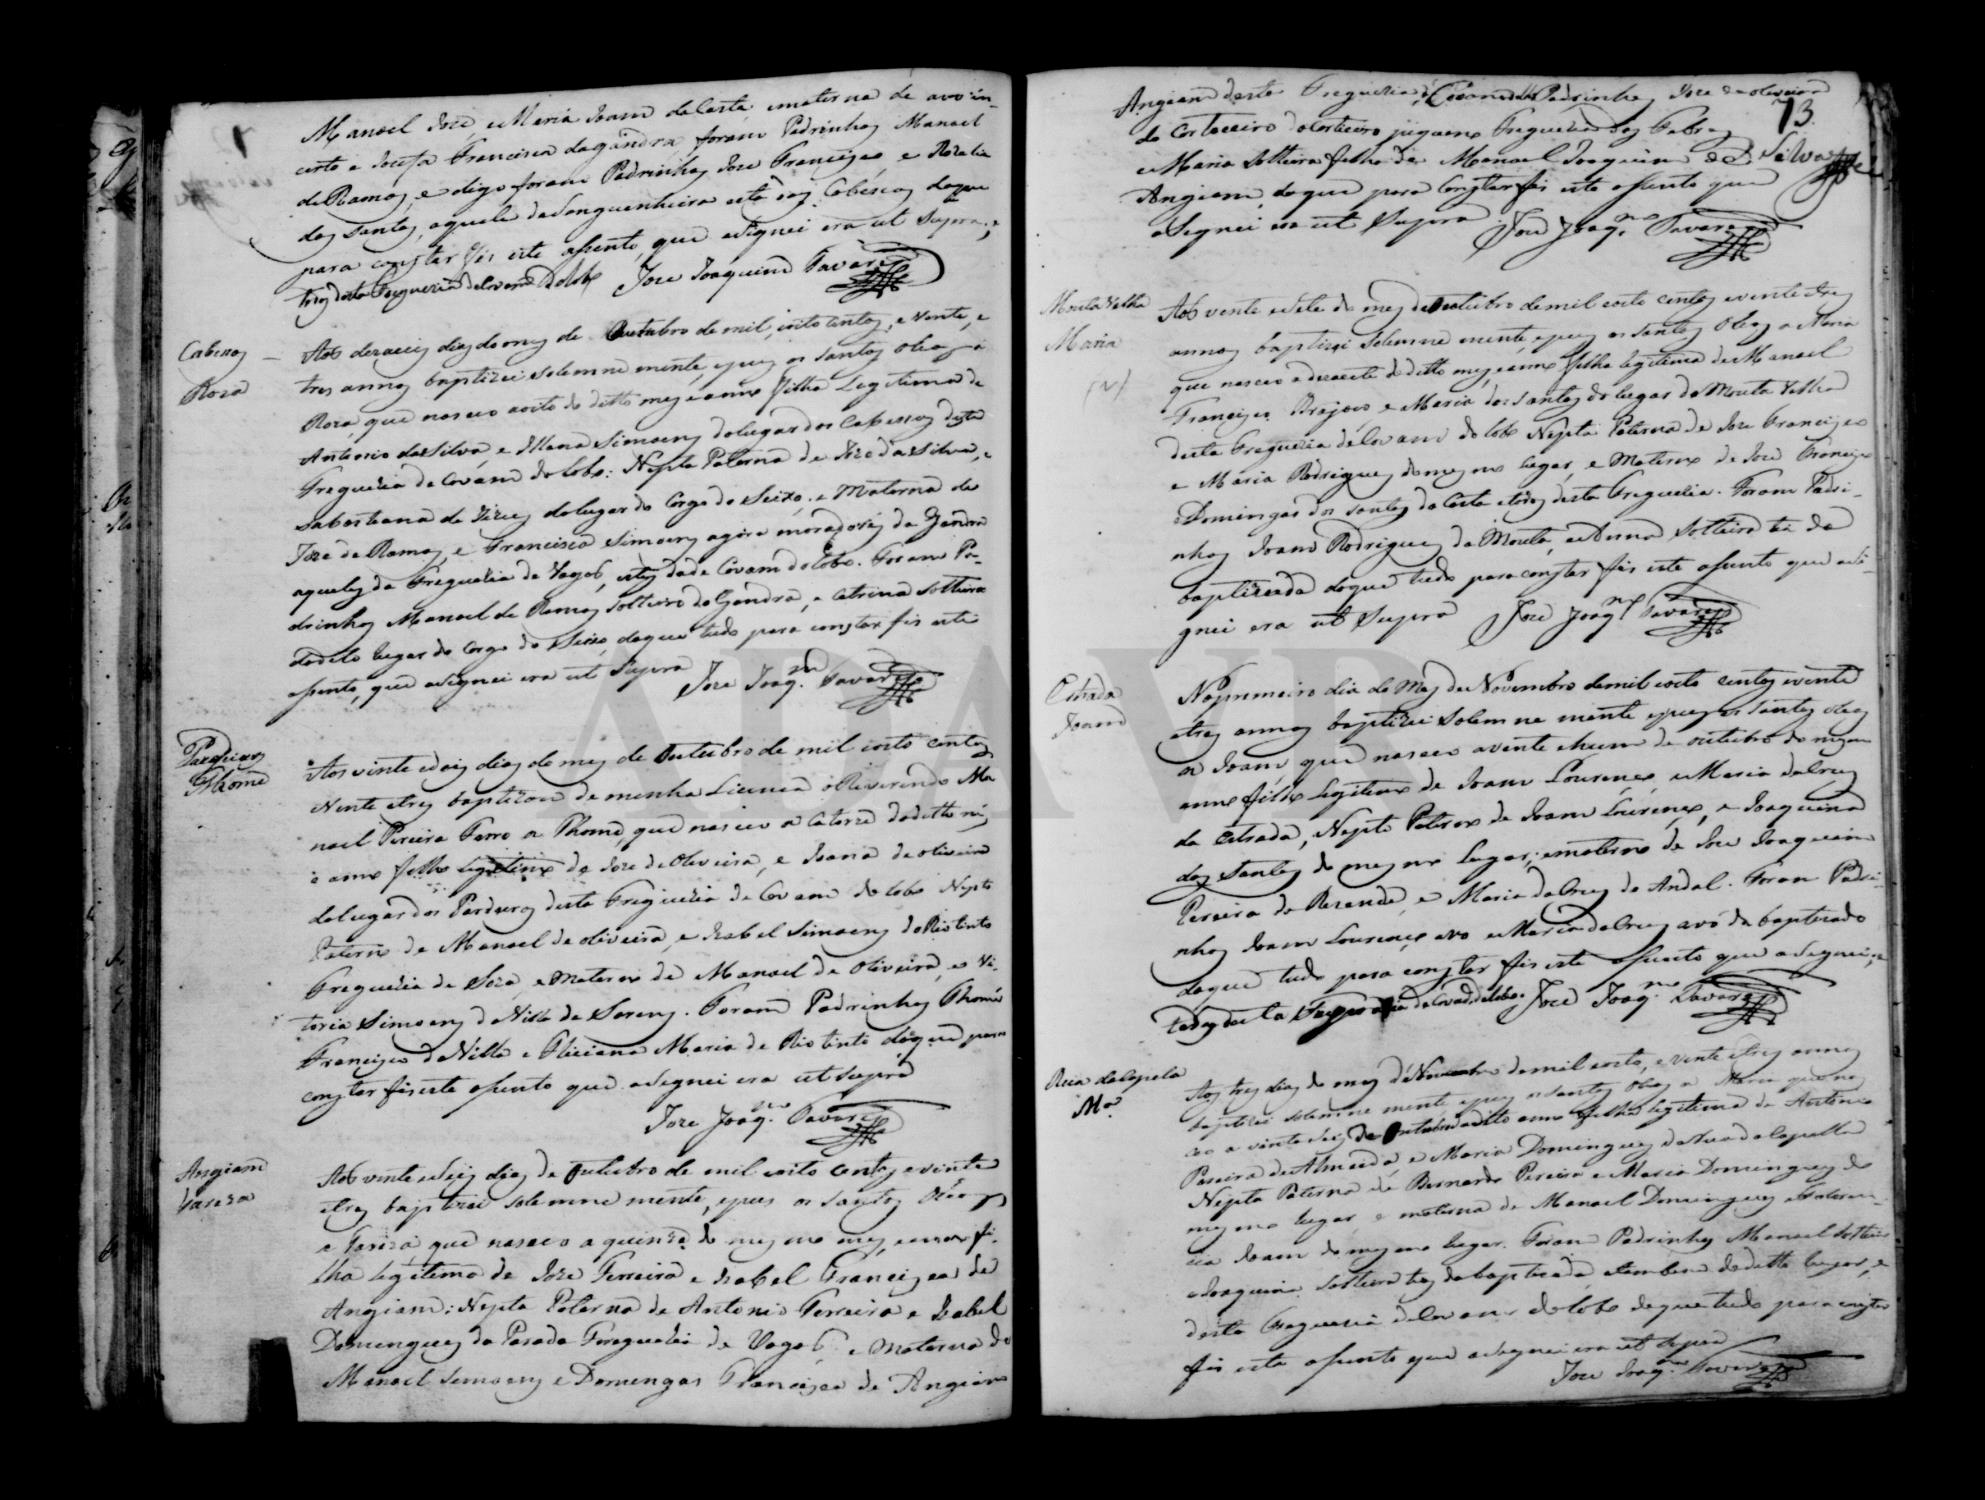 Manoel Joze, e Maria Joam da Costa, e materna de avo in-
certo e Josefa Francisca da gandra, foram Padrinhos Manoel
de Ramos, e digo foram Padrinhos Joze Francisco, e Rozalia
dos Santos, aquele da Junqueira esta dos Cabecos doque
para constar fis este asento, que asignei era ut supra, e
todos desta Freguezia de Covam do Lobo Joze Joaquim Tavares
Cabesos
Roza
Aos dezaceis dias do mes de Outubro de mil, oito centos, e vente, e
tres annos baptizei solemne mente, e pus os santos oleos a
Roza, que nasceo aoito do ditto mes e anno filha Legitima de
Antonio da Silva, e Maria Simoens do lugar dos Cabessos desta
Freguezia de Covam do Lobo: Nepta Paterna de Joze da Silva, e
Sabastiana de Jezus do lugar do Corgo do Seixo, e Materna de
Joze de Ramos, e Francisca Simoens agora moradores da Gandra
aqueles da Freguezia de Vagos, estes da de Covam do Lobo. Foram Pa-
drinhos Manoel de Ramos solteiro da Gandra, e Catrina solteira
do dito lugar do Corgo do Seixo, doque tudo para constar fis este
asento, que asignei era ut supra Joze Joaq.m Tavares
Pardieiros
Thome
Aos vinte e dois dias do mes de Outubro de mil oito centos
Vente e tres baptizou de menha Licença o Reverendo Ma
noel Pereira Ferro a Thome, que nasceo a catorze do ditto mes
e anno filho legitimo de Joze de Oliveira, e Joana de oliveira
do lugar dos Pardieiros desta Freguezia de Covam do Lobo Nepto
Paterno de Manoel de oliveira, e Izabel Simoens do Rio tinto
Freguezia de Soza, e Materno de Manoel de Oliveira, e Vi-
toria Simoens da Villa de Sorens. Foram Padrinhos Thome
Francisco da Villa e Feliciana Maria de Rio tinto doque para
constar fis este asento que asignei era ut supra
Joze Joaq.m Tavares
Angiam
Tareza
Aos vente e seis dias de Outubro de mil oito centos e vinte
e tres baptizei solemne mente, e pus os santos Oleos
a Tareza que nasceo a quinze do mesmo mes, e anno fi-
lha legitima de Joze Ferreira e Izabel Francisca de
Angiam: Nepta Paterna de Antonio Ferreira e Izabel
Domingues da Parada Freguezia de Vagos, e Materna de
Manoel Simoens e Domingas Francisca de Angiam
73
Angiam desta Freguezia de Covam do Lobo Padrinhos Joze de oliveira
do Corticeiro solteiro Freguezia das Febres
e Maria solteira filha de Manoel Joaquim da Silva de
Angiam, doque para constar fis este asento que
asignei era ut supra Joze Joaq.m Tavares
Mouta Velha
Maria
Aos vente e sete do mes de Outubro de mil oito centos e vente e tres
annos baptizei solemne mente, e pus os santos Oleos a Maria
que nasceo a dezasete do ditto mes, e anno filha legitima de Manoel
Francisco e Maria dos santos do lugar da Mouta Velha
desta Freguezia de Covam do Lobo Nepta Paterna de Joze Francisco
e Maria Rodrigues do mesmo lugar, e Materna de Joze Francisco
e Domingas dos santos da Costa e todos desta Freguezia. Foram Padri-
nhos Joam Rodrigues da Mouta, solteira tia da
baptizada doque tudo para constar fis este asento que asi-
gnei era ut Supra Joze Joaq.m Tavares
Estrada
Joam
No premeiro dia do Mes de Novembro de mil oito centos e vente
e tres annos baptizei solemne mente e pus os santos oleos
a Joam, que nasceo a vente e hum de outubro do mesmo
anno filho legitimo de Joam Lourenço, e Maria da Cruz
da Estrada, Nepto Paterno de Joam Lourenço, e Joaquina
dos Santos do mesmo lugar, e materno de Joze Joaquim
Pereira de Rezende, e Maria da Cruz de Andal. Foram Padri-
nhos Joam Lourenço avo e Maria da Cruz avó do baptizado
doque tudo para constar fis este asento que asignei, e
todos desta Freguezia de Covam do Lobo. Joze Joaq.m Tavares
Rua da Capela
M.a
Aos tres dias do mes de Novembro de mil oito, e vente e tres annos
baptizei solemne mente e pus os santos Oleos a Maria que nas
ceo a vinte seis de Outubro do ditto anno filha legitima de Antonio
Pereira de Almeida, e Maria Domingues da Rua da Capella
Nepta Paterna de Bernardo Pereira e Maria Domingues do
mesmo lugar, e materna de Manoel Domingues e
Joam do mesmo lugar. Foram Padrinhos Manoel solteiro
e Joaquina solteira tios da baptizada e tambem do ditto lugar, e
desta Freguezia de Covam do Lobo doque tudo para constar
fis este asento que asignei era ut supra
Joze Joaq.m Tavares
ADAVR